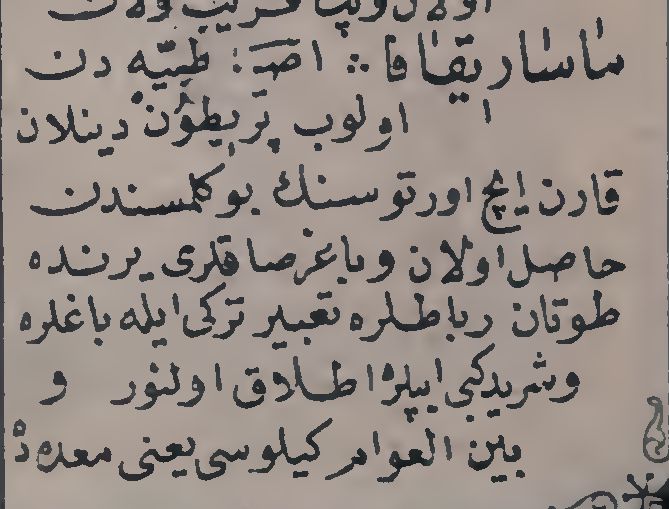 اولان وپا قريب ولات
ساسارىقافا ⁘ اصـ: طبيّه دن
اولوب پريطون دينلان
قارن ايچ اورتو سنك بوكلمسندن
حاصل اولان وباغرصاقلرى يرنده
طوتان رباطلره تعبير تركى ايله باغلره
وشريدكبى ايپلره اطلاق اولنور و
بين العوام كيلوسى يعنى معده دٔ